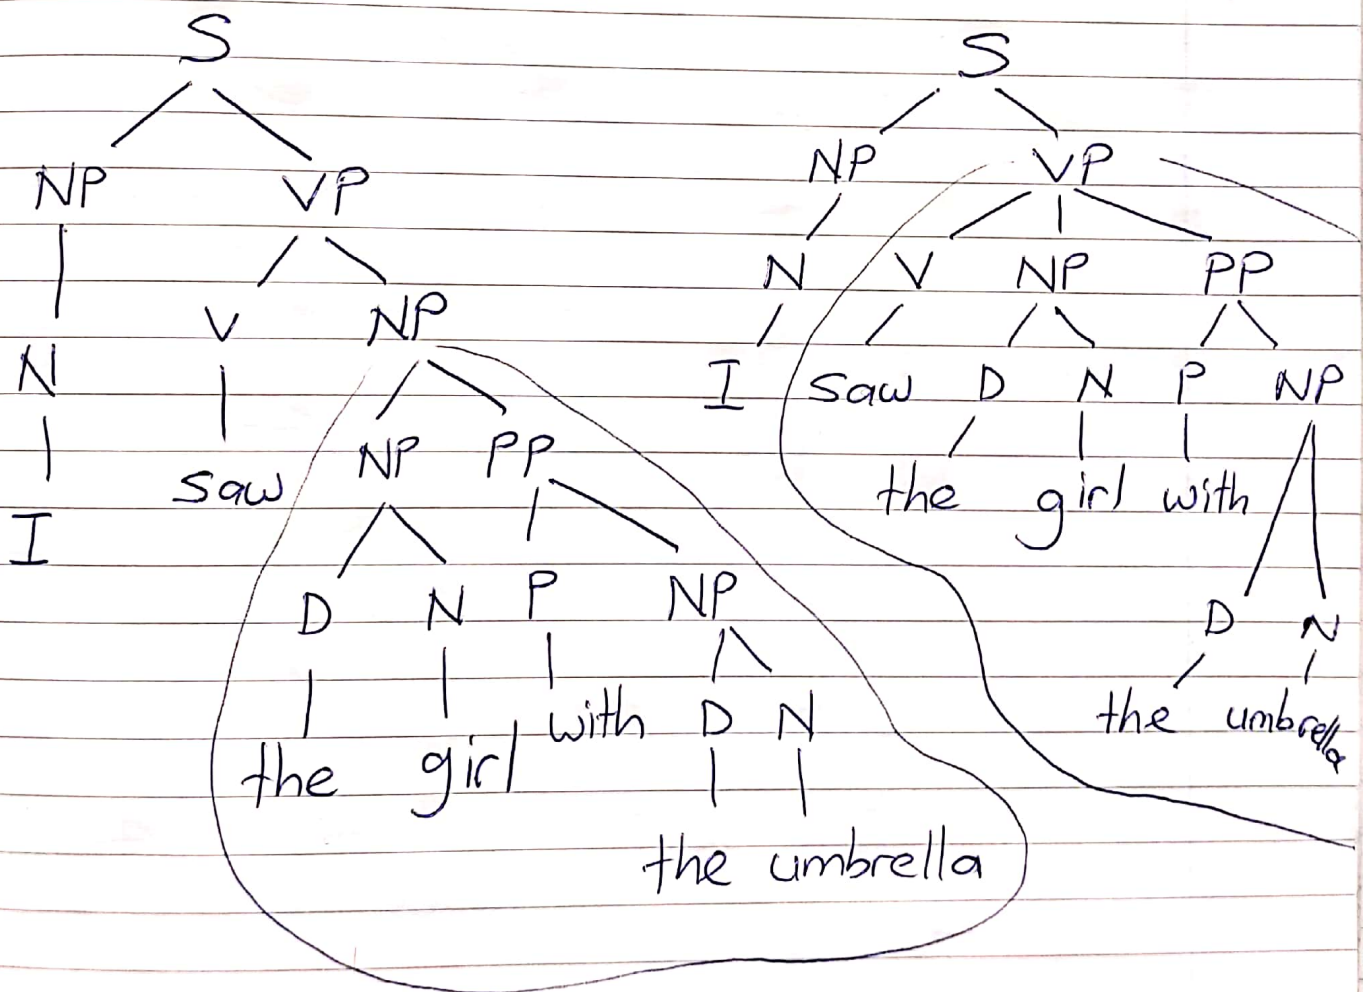 S
NP VP
N V NP
I saw NP PP
D N P NP
the girl with D N
the umbrella
S
NP VP
N V NP PP
I saw D N P NP
the girl with
D N
the umbrella